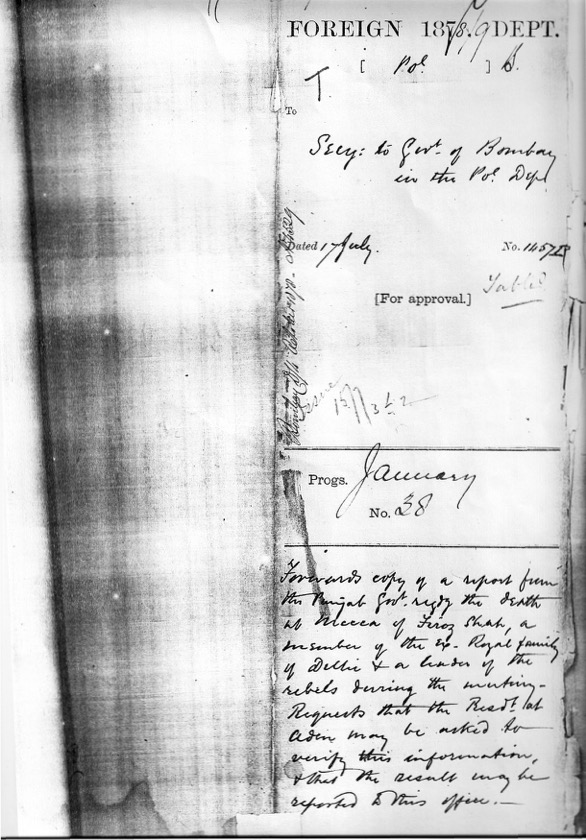 FOREIGN 1878/9 DEPT.
[ Pol ] B.
To
Secy: to Govt. of Bombay
in the Pol. Dept
Dated 17 July. No. 1457
[For approval.]
Issue
Progs. January
No. 38
Forwards copy of a report from
the Punjab Govt. regdg the death
at Mecca of Firoz Shah, a
member of the Ex-Royal family
of Delhi & a leader of the
rebels during the mutiny.
Requests that the Resdt. at
Aden may be asked to
verify this information,
& that the result may be
reported to this office.—